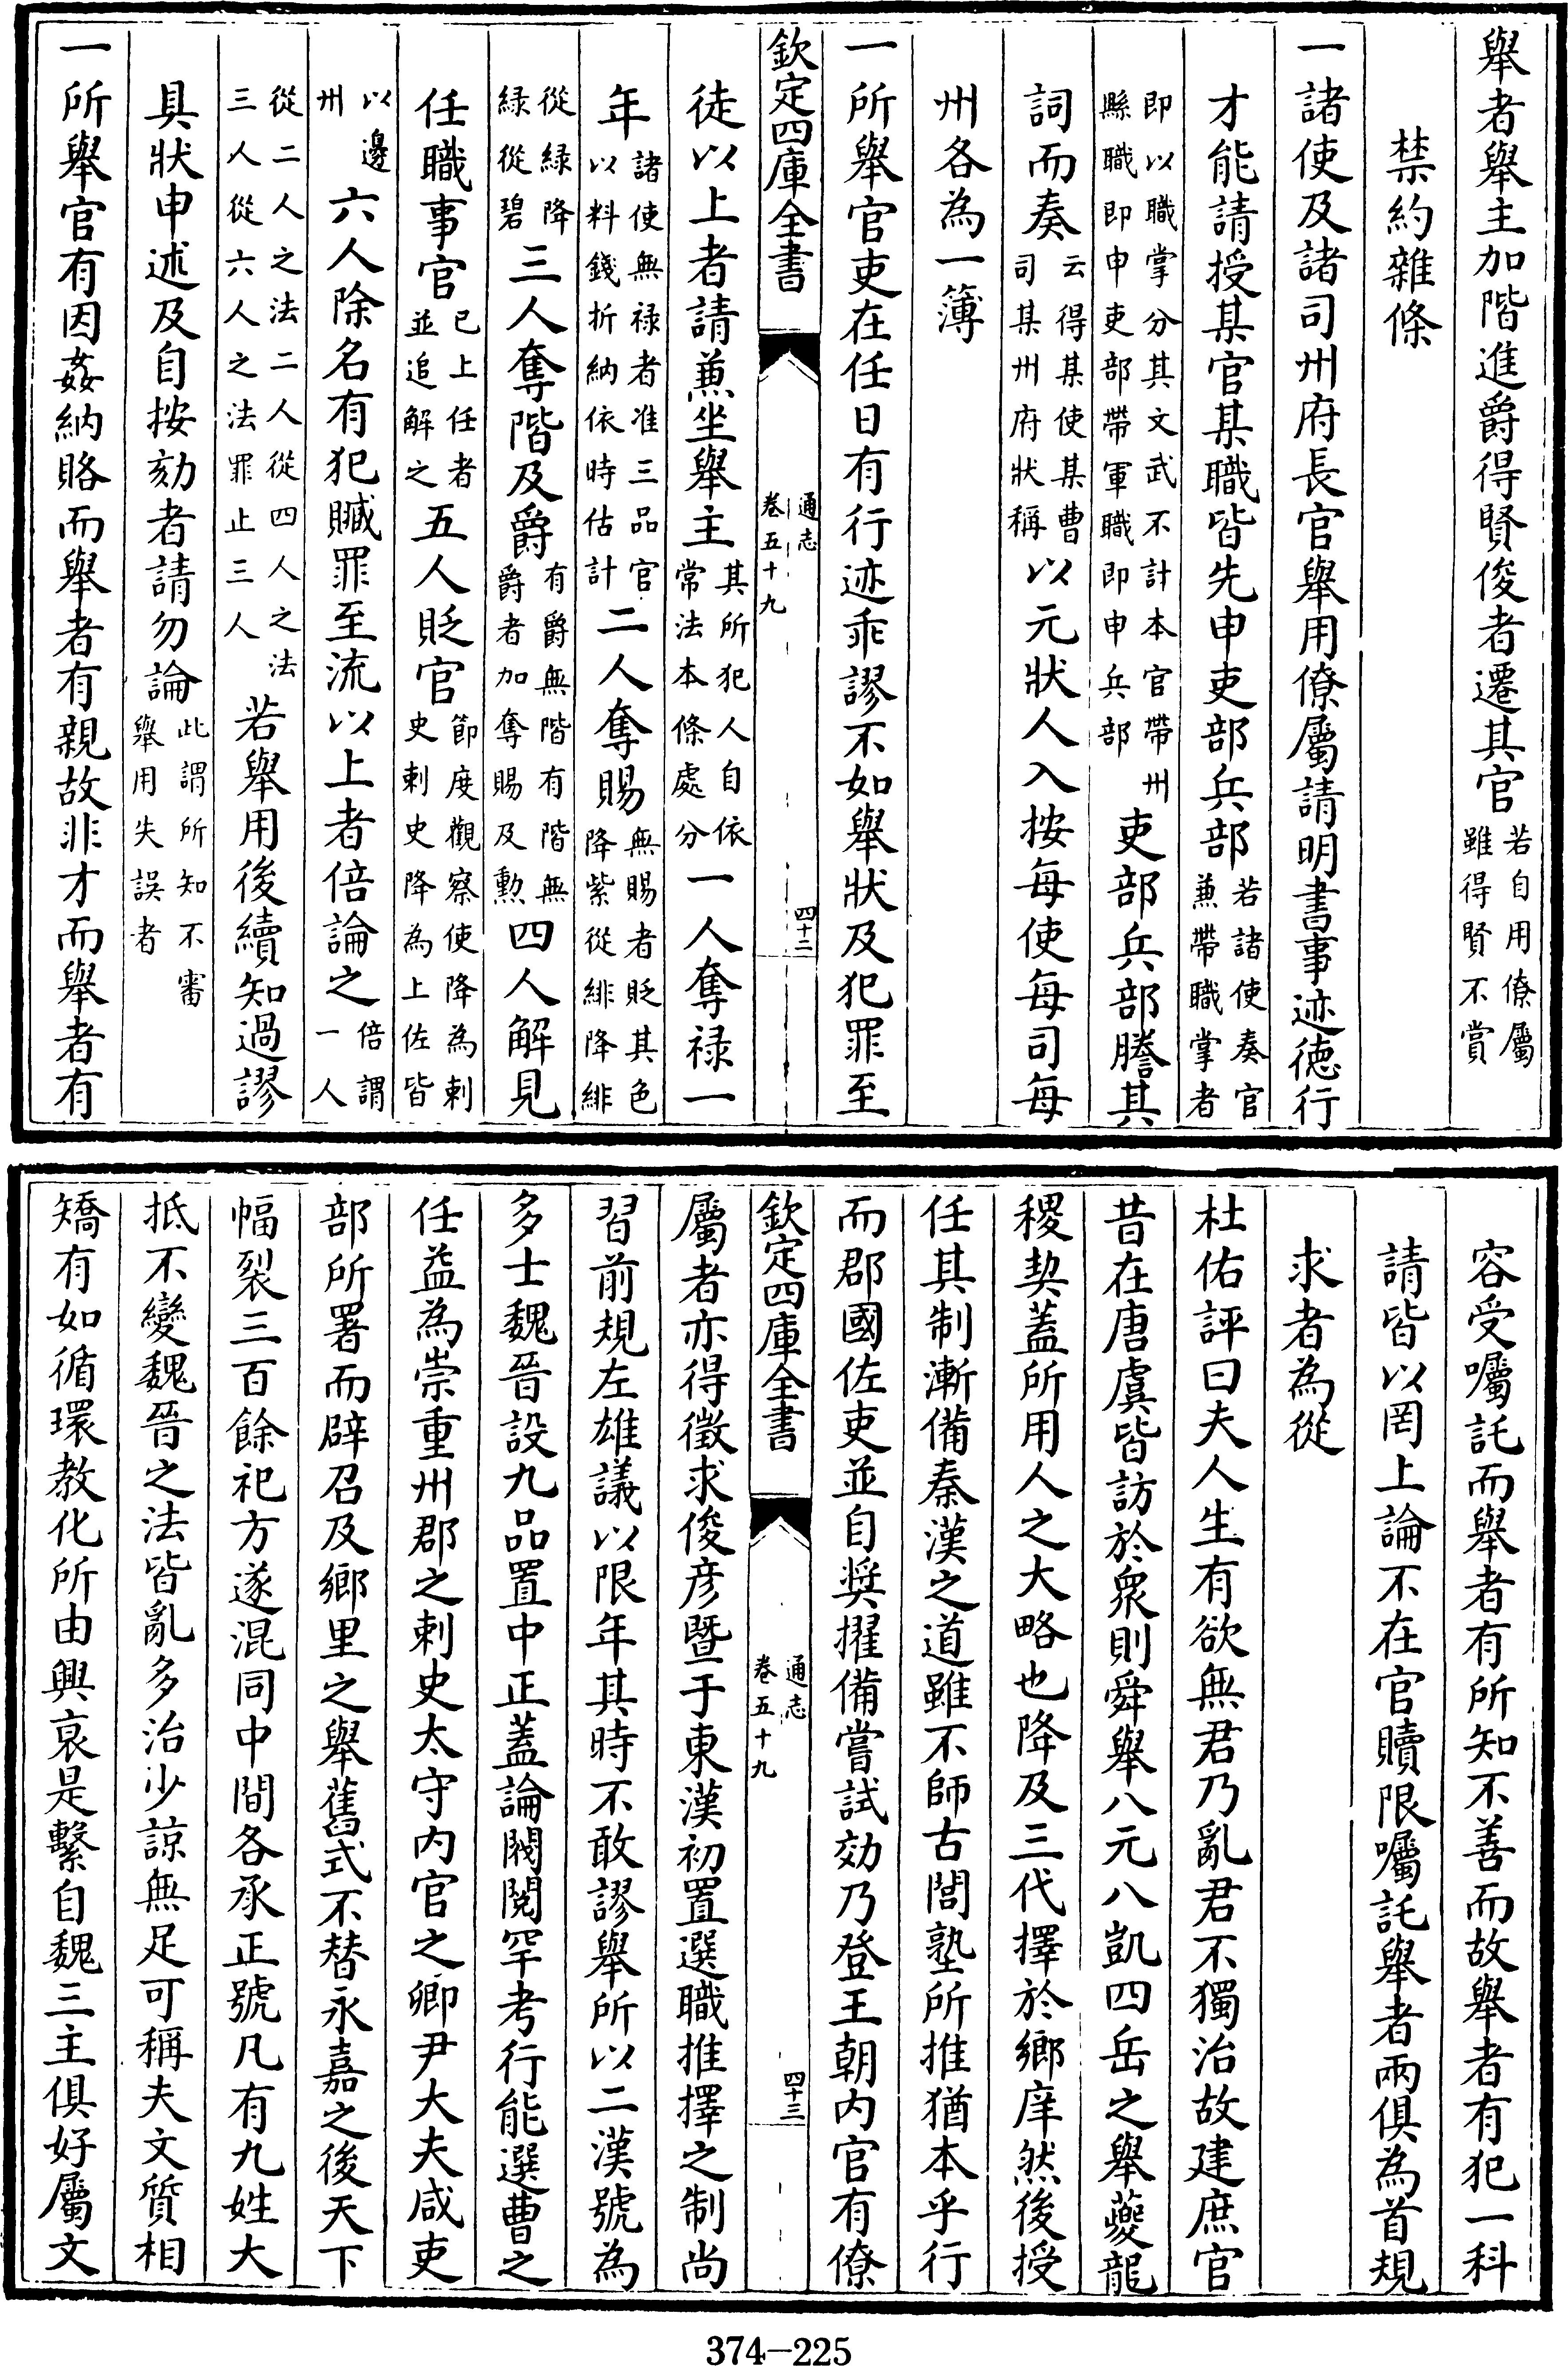 舉者舉主加階進爵得賢俊者遷其官若自用僚屬雖得賢不賞
禁約雜條
一諸使及諸司州府長官舉用僚屬請明書事迹德行
才能請授某官某職皆先申吏部兵部若諸使奏官兼帶職掌者
即以職掌分其文武不計本官帶州縣職即申吏部帶軍職即申兵部吏部兵部謄其
詞而奏云得某使某曹司某州府狀稱以元狀人入按每使每司每
州各為一簿
一所舉官吏在任日有行迹乖謬不如舉狀及犯罪至
欽定四庫全書
通志
卷五十九
四十二
徒以上者請兼坐舉主其所犯人自依常法本條處分一人奪祿一
年諸使無祿者准三品官以料錢折納依時估計二人奪賜無賜者貶其色降紫從緋降緋
從綠降綠從碧三人奪階及爵有爵無階有階無爵者加奪賜及勲四人解見
任職事官已上任者並追解之五人貶官節度觀察使降為刺史刺史降為上佐皆
以邊州六人除名有犯贓罪至流以上者倍論之倍謂一人
從二人之法二人從四人之法三人從六人之法罪止三人若舉用後續知過謬
具狀申述及自按劾者請勿論此謂所知不審舉用失誤者
一所舉官有因姦納賂而舉者有親故非才而舉者有
容受囑託而舉者有所知不善而故舉者有犯一科
請皆以罔上論不在官贖限囑託舉者兩俱為首規
求者為從
杜佑評曰夫人生有欲無君乃亂君不獨治故建庶官
昔在唐虞皆訪於衆則舜舉八元八凱四岳之舉夔龍
稷契蓋所用人之大略也降及三代擇於鄉庠然後授
任其制漸備秦漢之道雖不師古閭塾所推猶本乎行
而郡國佐吏並自奨擢備嘗試効乃登王朝内官有僚
欽定四庫全書
通志
卷五十九
四十三
屬者亦得徵求俊彦暨于東漢初置選職推擇之制尚
習前規左雄議以限年其時不敢謬舉所以二漢號為
多士魏晉設九品置中正蓋論閥閲罕考行能選曹之
任益為崇重州郡之刺史太守内官之卿尹大夫咸吏
部所署而辟召及鄉里之舉舊式不替永嘉之後天下
幅裂三百餘祀方遂混同中間各承正號凡有九姓大
抵不變魏晉之法皆亂多治少諒無足可稱夫文質相
矯有如循環教化所由興衰是繫自魏三主俱好屬文
374-225